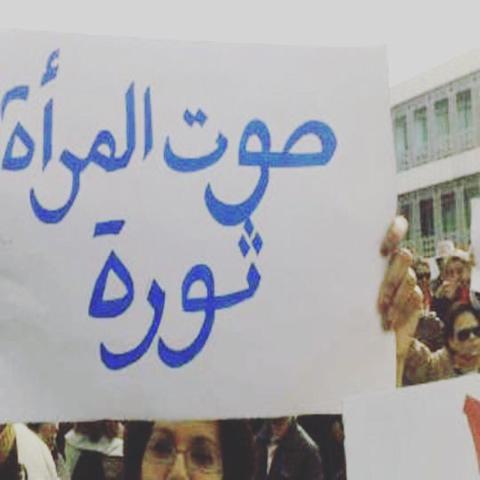 صوت المرأة
ثورة